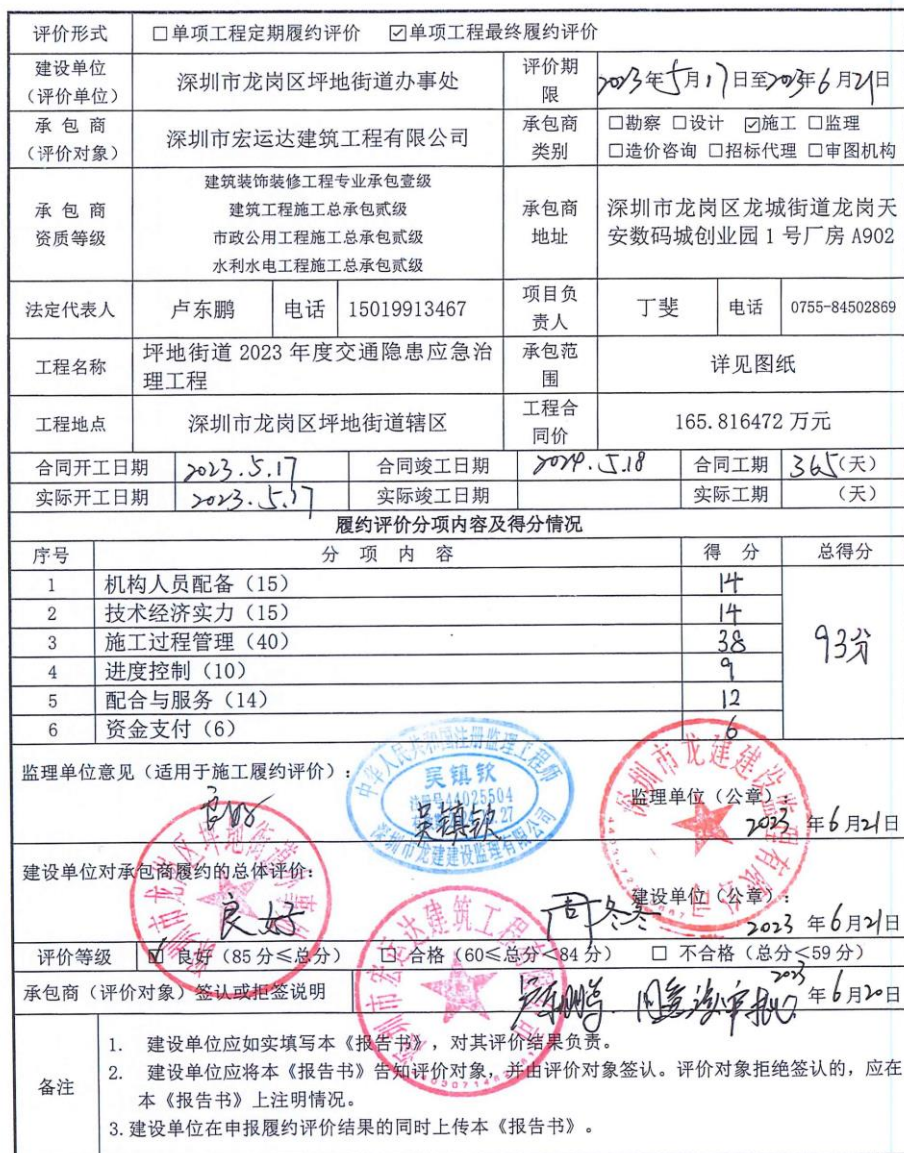 评价形式 □单项工程定期履约评价 ☑单项工程最终履约评价
建设单位（评价单位） 深圳市龙岗区坪地街道办事处 评价期限 2023年5月17日至2023年6月21日
承包商（评价对象） 深圳市宏运达建筑工程有限公司 承包商类别 □勘察 □设计 ☑施工 □监理
□造价咨询 □招标代理 □审图机构
承包商资质等级 建筑装饰装修工程专业承包壹级
建筑工程施工总承包贰级
市政公用工程施工总承包贰级
水利水电工程施工总承包贰级
承包商地址 深圳市龙岗区龙城街道龙岗天
安数码城创业园1号厂房A902
法定代表人 卢东鹏 电话 15019913467 项目负责人 丁斐 电话 0755-84502869
工程名称 坪地街道2023年度交通隐患应急治
理工程 承包范围 详见图纸
工程地点 深圳市龙岗区坪地街道辖区 工程合同价 165.816472万元
合同开工日期 2023.5.17 合同竣工日期 2024.5.18 合同工期 365(天)
实际开工日期 2023.5.17 实际竣工日期 实际工期 (天)
履约评价分项内容及得分情况
序号 分项内容 得分 总得分
1 机构人员配备（15） 14
2 技术经济实力（15） 14
3 施工过程管理（40） 38
93分
4 进度控制（10） 9
5 配合与服务（14） 12
6 资金支付（6） 6
监理单位意见（适用于施工履约评价）：
良好
中华人民共和国注册监理工程师
吴镇钦
注册号44025504
深圳市龙建建设监理有限公司
吴镇钦
深圳市龙建建设监理有限公司
监理单位（公章）：
2023年6月21日
建设单位对承包商履约的总体评价：
良好
深圳市龙岗区坪地街道办事处
建设单位（公章）：
2023年6月21日
评价等级 ☑ 良好（85分≤总分） □ 合格（60≤总分<84分） □ 不合格（总分≤59分）
深圳市宏运达建筑工程有限公司
承包商（评价对象）签认或拒签说明 卢东鹏 同意 2023年6月20日
备注 1. 建设单位应如实填写本《报告书》，对其评价结果负责。
2. 建设单位应将本《报告书》告知评价对象，并由评价对象签认。评价对象拒绝签认的，应在
本《报告书》上注明情况。
3.建设单位在申报履约评价结果的同时上传本《报告书》。